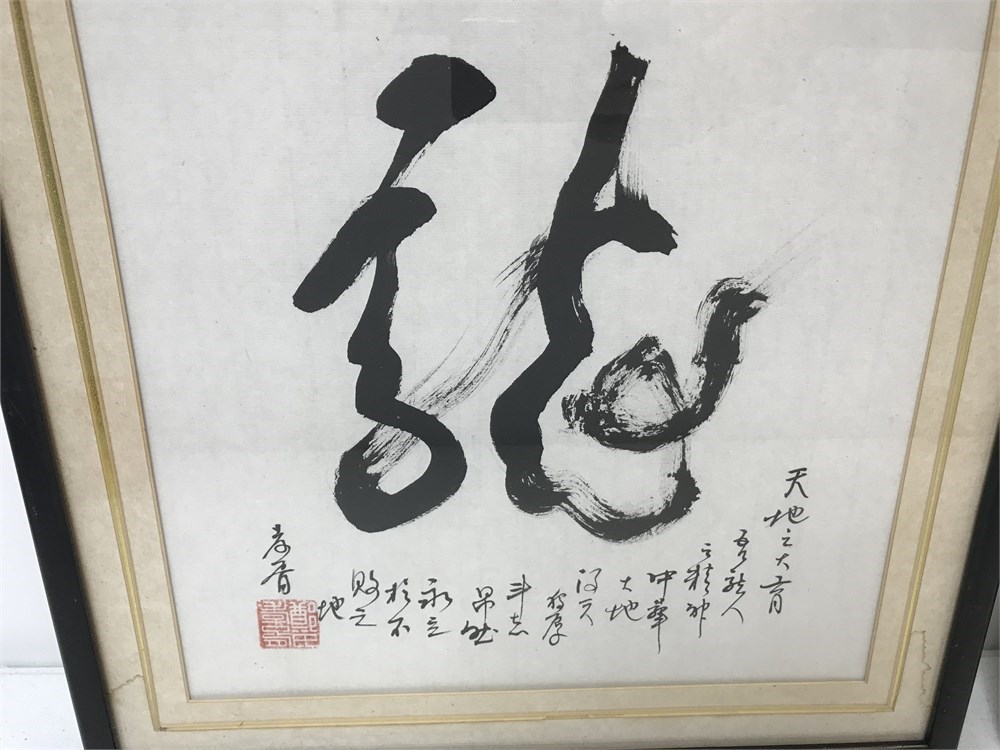 龍
天地之大育
吾龍人
之精神
中華
大地
得天
獨厚
斗志
昂然
永立
於不
敗之
地
孝胥